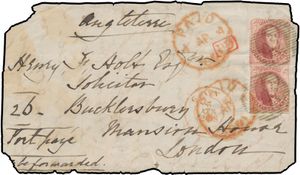 Angleterre
Henry F. Holt Esq
Solicitor
26 Bucklersbury
Mansion House
London
Port payé
to be forwarded.